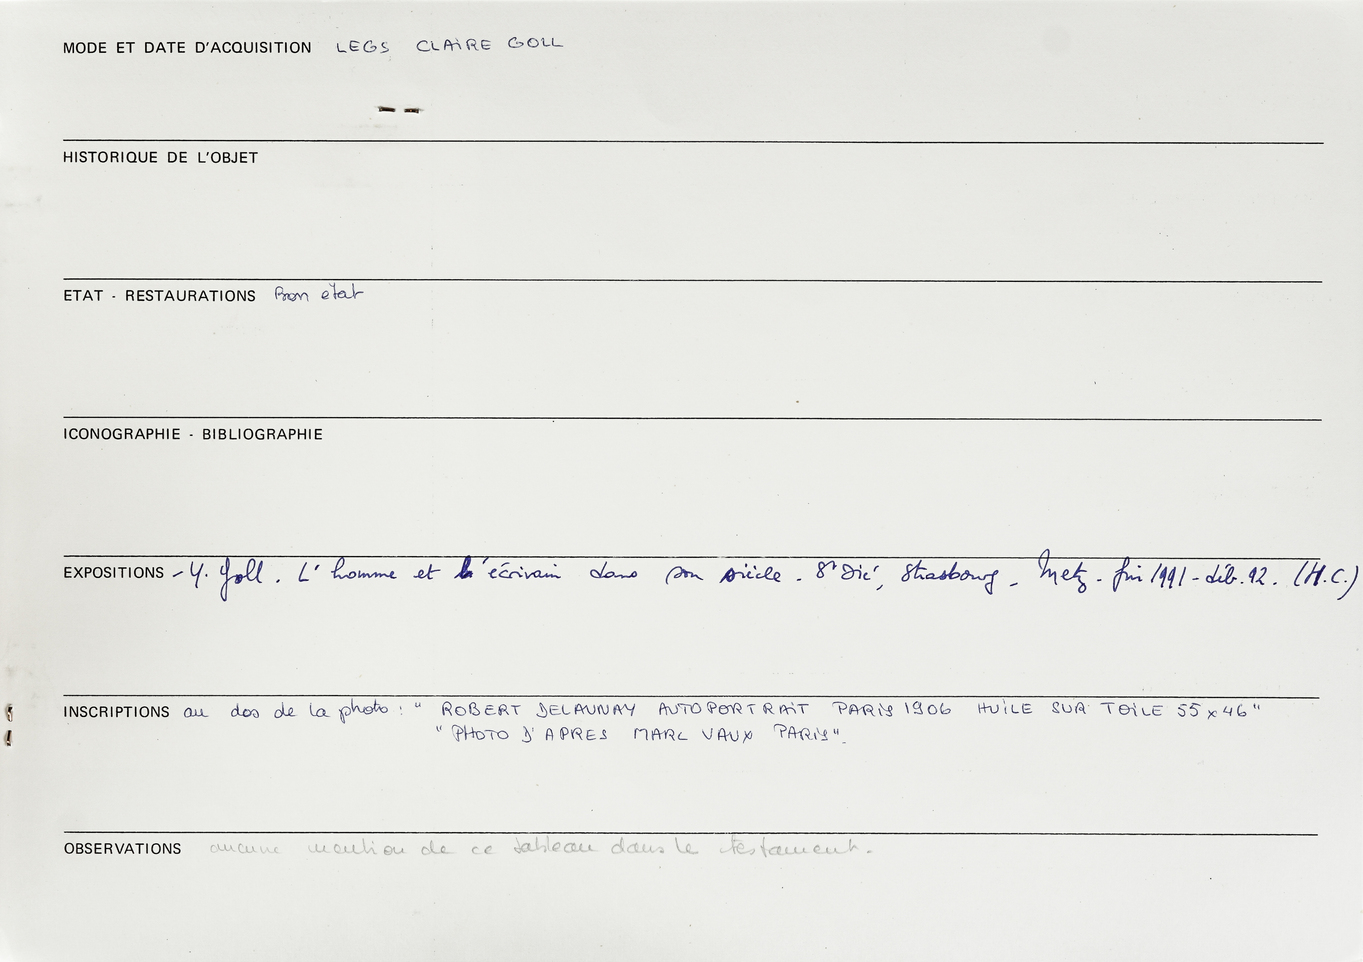 MODE ET DATE D'ACQUISITION LEGS CLAIRE GOLL
HISTORIQUE DE L'OBJET
ETAT - RESTAURATIONS Bon etat
ICONOGRAPHIE - BIBLIOGRAPHIE
EXPOSITIONS - Y. Goll. L'homme et l'écrivain dans son siècle. St Dié, Strasbourg - Metz - fin 1991 - déb. 92. (H.C.)
INSCRIPTIONS au dos de la photo : " ROBERT DELAUNAY AUTOPORTRAIT PARIS 1906 HUILE SUR TOILE 55 x 46 "
" PHOTO D'APRES MARC VAUX PARIS ".
OBSERVATIONS aucune mention de ce tableau dans le testament.